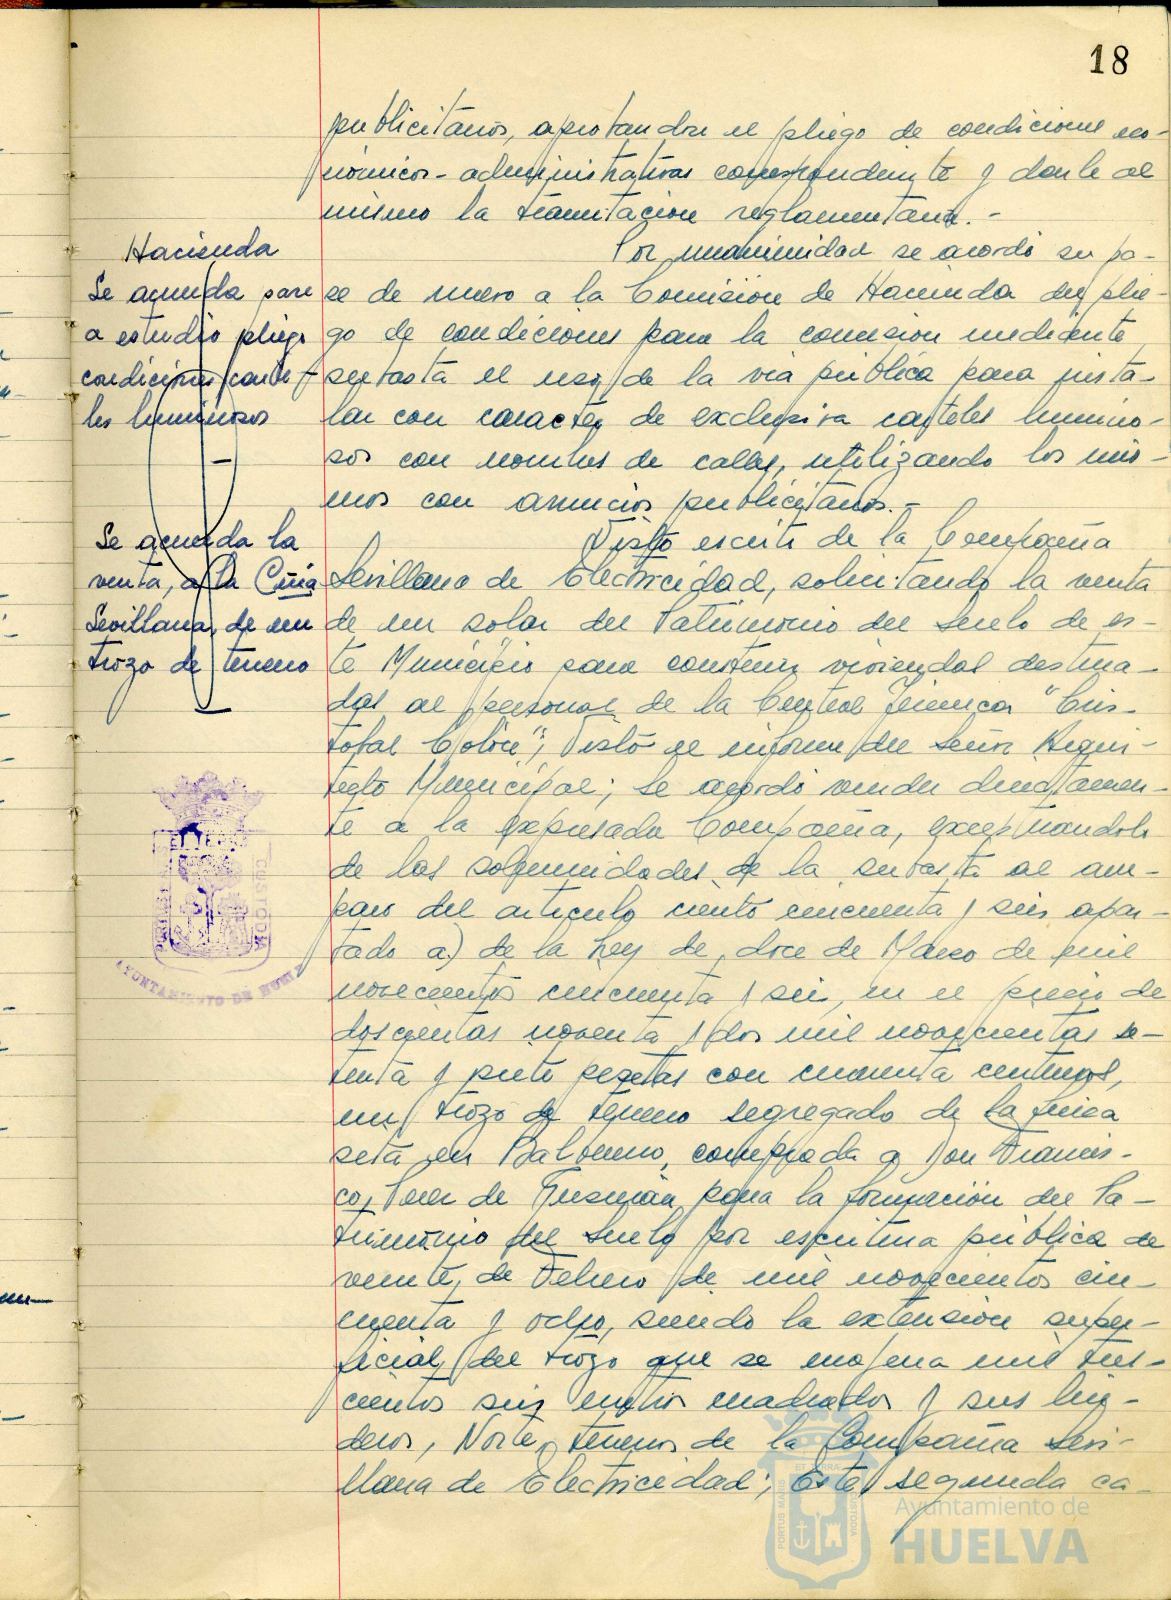 18
publicitarios, aprobandose el pliego de condiciones eco-
nómico-administrativas correspondiente y darle al
mismo la tramitación reglamentaria.-
Hacienda
Se acuerda pase
a estudio pliego
condiciones carte-
les luminosos
Por unanimidad se acordó su pa-
se de nuevo a la Comisión de Hacienda del plie-
go de condiciones para la concesión mediante
subasta el uso de la vía pública para insta-
lar con caracter de exclusiva carteles lumino-
sos con nombres de calles, utilizando los mis-
mos con anuncios publicitarios.-
Se acuerda la
venta, a la Cñia
Sevillana, de un
trozo de terreno
Visto escrito de la Compañia
Sevillana de Electricidad, solicitando la venta
de un solar del Patrimonio del Suelo de es-
te Municipio para construir viviendas destina-
das al personal de la Central Térmica "Cris-
tobal Colón"; Visto el informe del Señor Arqui-
tecto Municipal; se acordó vender directamen-
te a la expresada Compañia, exceptuandola
de las solemnidades de la subasta al am-
paro del articulo ciento cincuenta y seis apar-
tado a) de la Ley de doce de Marzo de mil
novecientos cincuenta y seis, en el precio de
doscientas noventa y dos mil novecientas se-
tenta y siete pesetas con cincuenta centimos,
un trozo de terreno segregado de la finca
sita en Balbueno, comprada a Don Francis-
co Perez de Guzmán para la formación del Pa-
trimonio del Suelo por escritura pública de
veinte de Febrero de mil novecientos cin-
cuenta y ocho, siendo la extensión super-
ficial del trozo que se enajena mil tres-
cientos seis metros cuadrados y sus lin-
deros, Norte, terrenos de la Compañia Sevi-
llana de Electricidad; Este, segunda ca-
AYUNTAMIENTO DE HUELVA
PORTUS MARIS
ET TERRAE
CUSTODIA
Ayuntamiento de
HUELVA